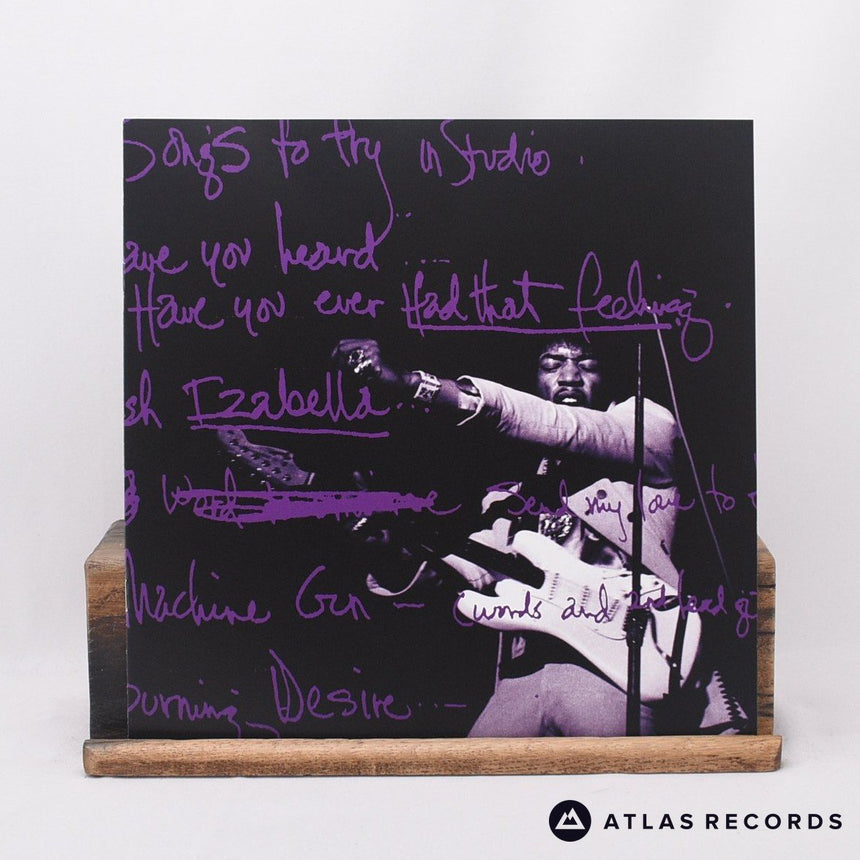 Songs to try in Studio .
ave you heard ....
Have you ever Had that feeling .
sh Izabella ...
Send my love to
Machine Gun — (words and 2nd lead g
Burning Desire ... —
ATLAS RECORDS